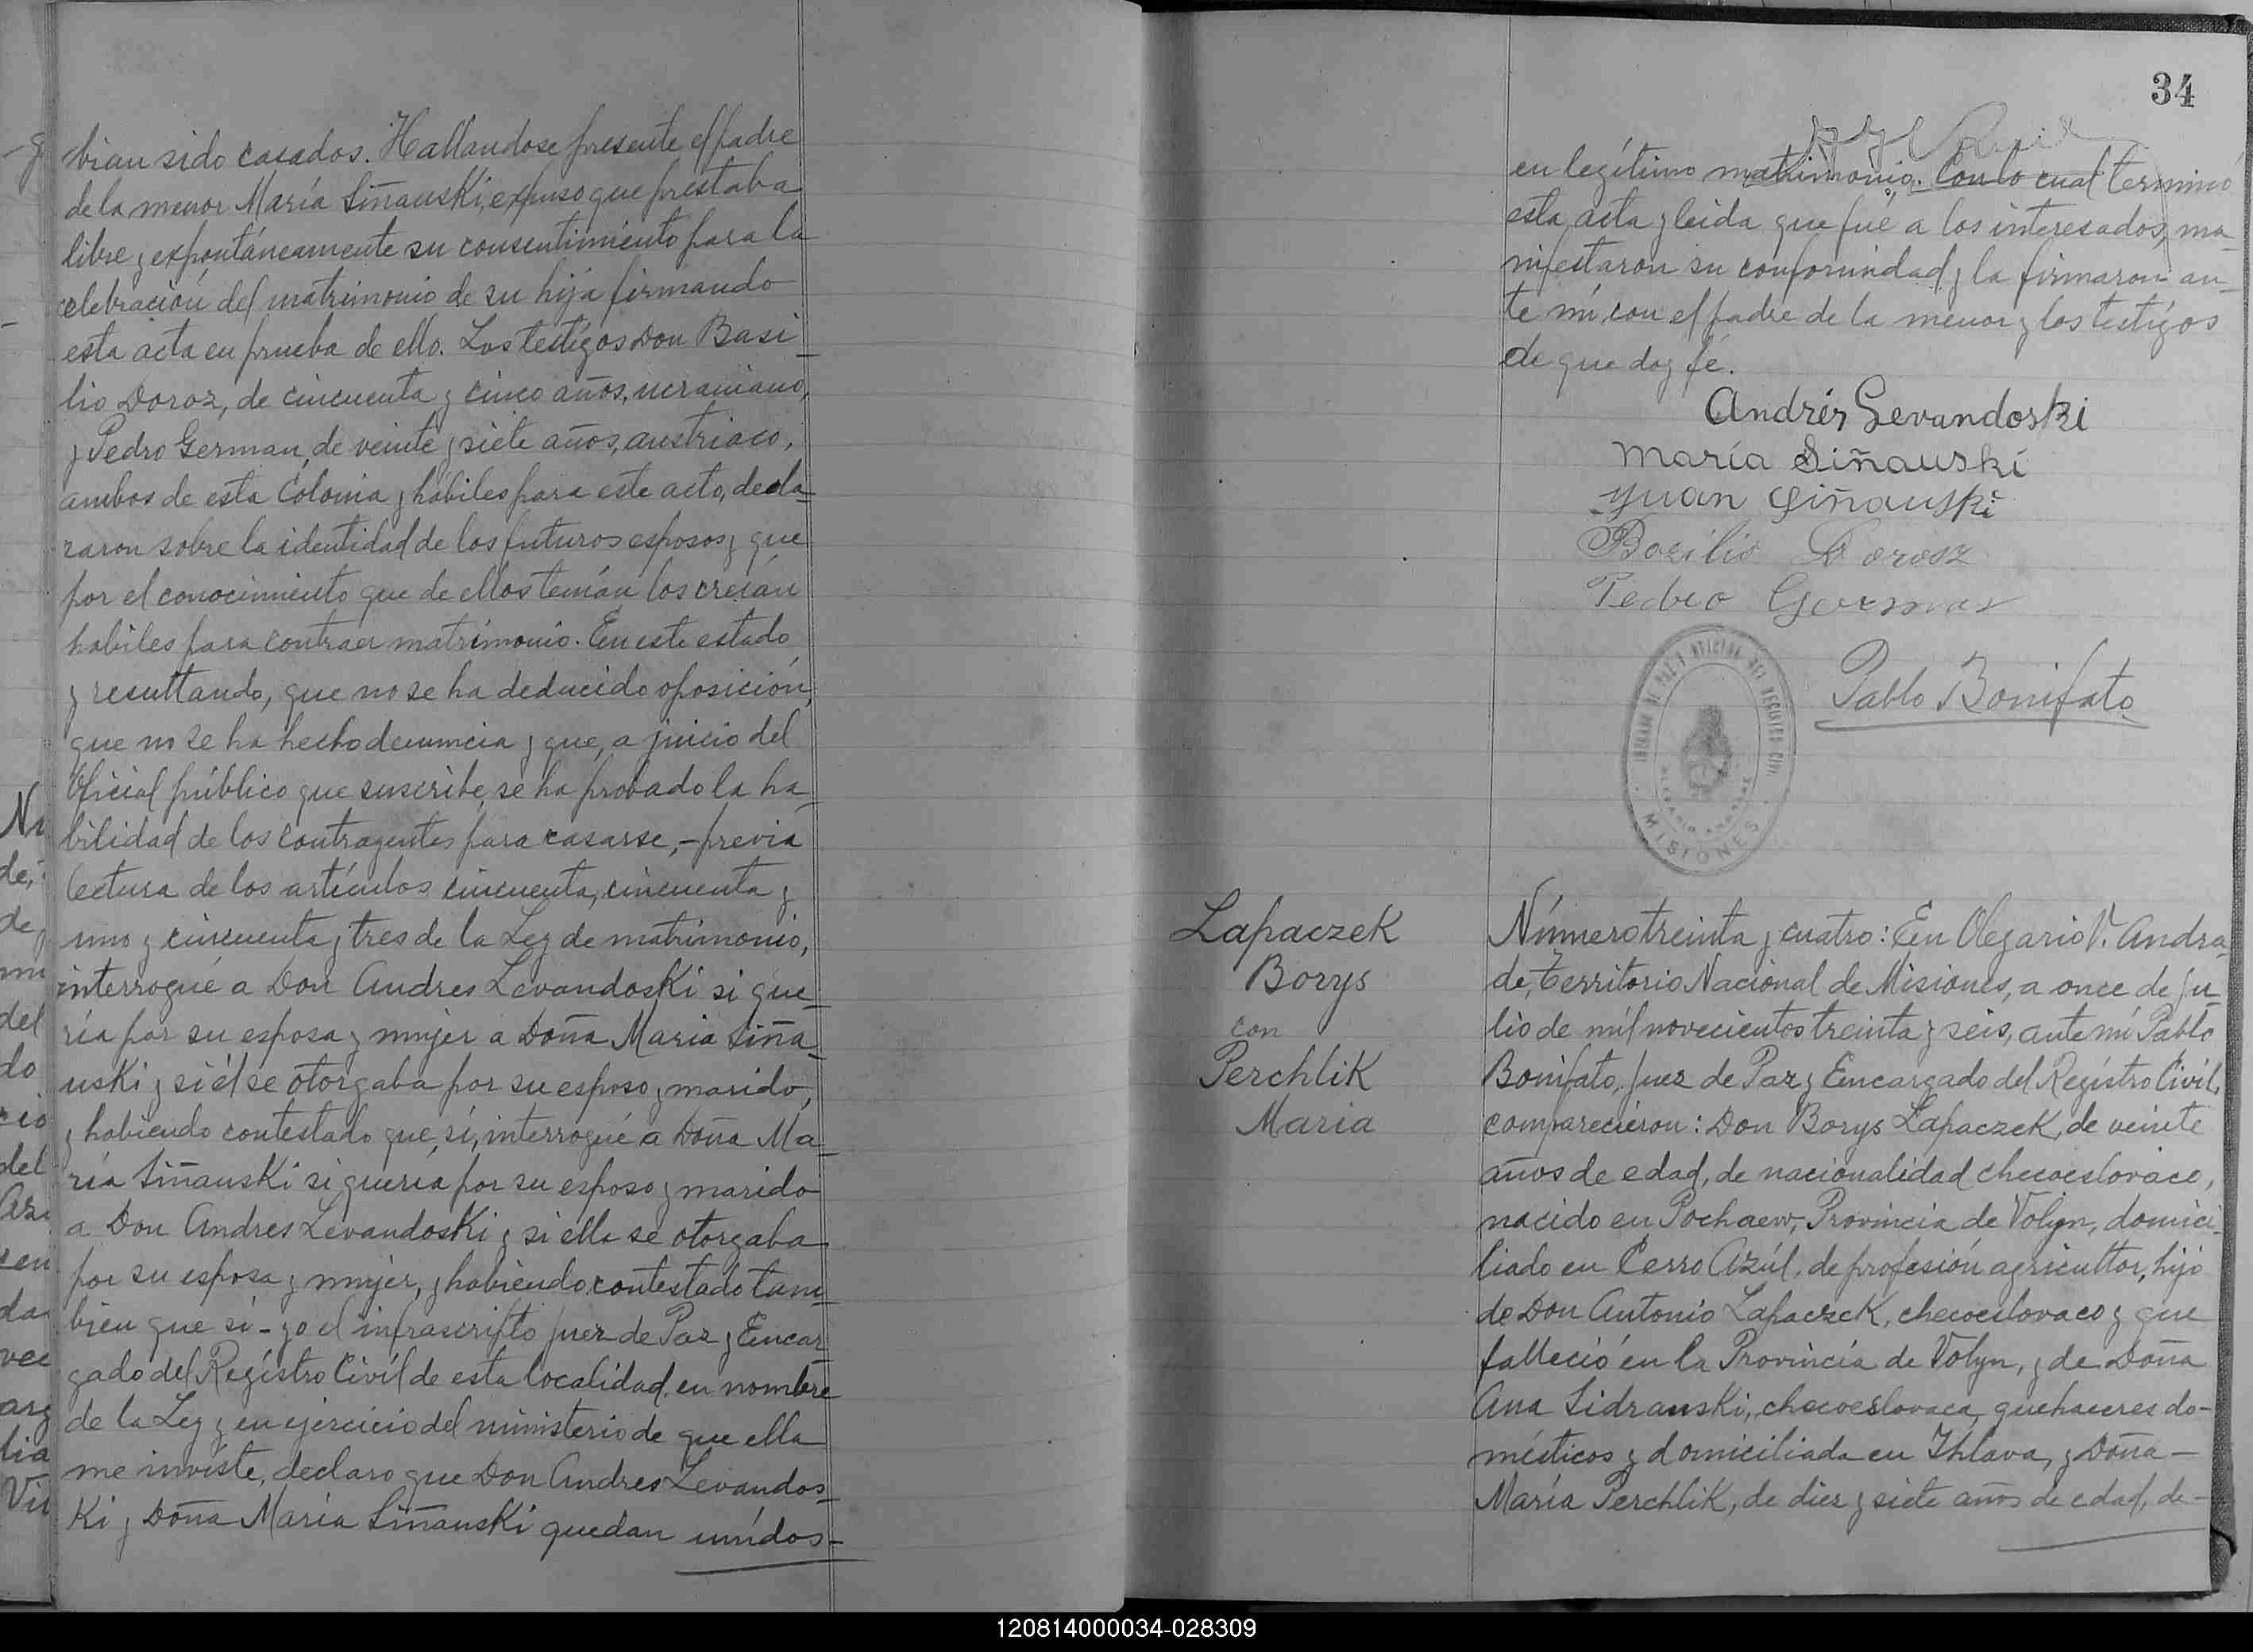 bian sido casados. Hallandose presente el padre
de la menor María Siñauski, expuso que prestaba
libre y expontáneamente su consentimiento para la
celebración del matrimonio de su hija firmando
esta acta en prueba de ello. Los testigos Don Basi-
lio Doroz, de cincuenta y cinco años, ucraniano,
y Pedro German, de veinte y siete años, austriaco,
ambos de esta Colonia y hábiles para este acto, decla-
raron sobre la identidad de los futuros esposos y que
por el conocimiento que de ellos tenían los creían
habiles para contraer matrimonio. En este estado
y resultando, que no se ha deducido oposición,
que no se ha hecho denuncia y que, a juicio del
Oficial público que suscribe, se ha probado la ha-
bilidad de los contrayentes para casarse, - previa
lectura de los artículos cincuenta, cincuenta y
uno y cincuenta y tres de la Ley de matrimonio,
interrogué a Don Andres Levandoski si que-
ría por su esposa y mujer a Doña Maria Siña-
uski y si él se otorgaba por su esposo y marido,
y habiendo contestado que, sí, interrogué a Doña Ma-
ría Siñauski si quería por su esposo y marido
a Don Andres Levandoski y si ella se otorgaba
por su esposa y mujer, y habiendo contestado tam-
bien que sí - yo el infrascripto Juez de Paz y Encar-
gado del Regístro Civíl de esta localidad, en nombre
de la Ley y en ejercicio del ministerio de que ella
me inviste, declaro que Don Andres Levandos-
Ki y Doña María Siñauski quedan unídos-
34
en legítimo matrimonio. Con lo cual terminó
esta acta y leida que fué a los interesados, ma-
nifestaron su conformidad y la firmaron an-
te mí con el padre de la menor y los testigos
de que doy fé.
Andrés Levandoski
María Siñauski
Yuan Siñauski
Bozilio Dorosz
Pedro German
Pablo Bonifato
MISIONES
Lapaczek
Borys
con
Perchlik
Maria
Número treinta y cuatro: En Olegario V. Andra-
de, Territorio Nacional de Misiones, a once de Ju-
lio de mil novecientos treinta y seis, ante mí Pablo
Bonifato, Juez de Paz y Encargado del Regístro Civíl,
comparecieron: Don Borys Lapaczek, de veinte
años de edad, de nacionalidad checoeslovaco,
nacido en Pochaew, Provincia de Volyn, domici-
liado en Cerro Azúl, de profesión agricultor, hijo
de Don Antonio Lapaczek, checoeslovaco y que
falleció en la Provincia de Volyn, y de Doña
Ana Sidranski, checoeslovaca, quehaceres do-
mésticos y domiciliada en Ihlava, y Doña -
María Perchlik, de diez y siete años de edad, de-
120814000034-028309